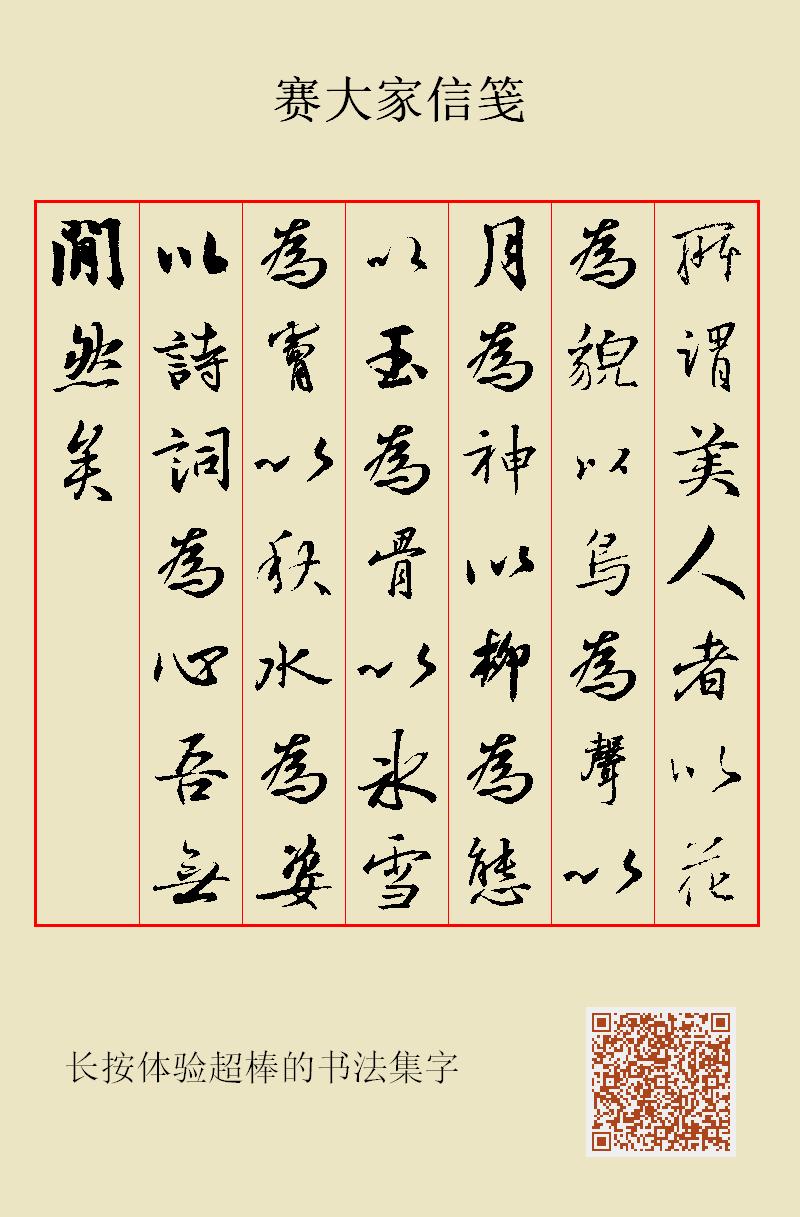 赛大家信笺
所謂美人者以花
為貌以鳥為聲以
月為神以柳為態
以玉為骨以冰雪
為膚以秋水為姿
以詩詞為心吾無
閒然矣
长按体验超棒的书法集字